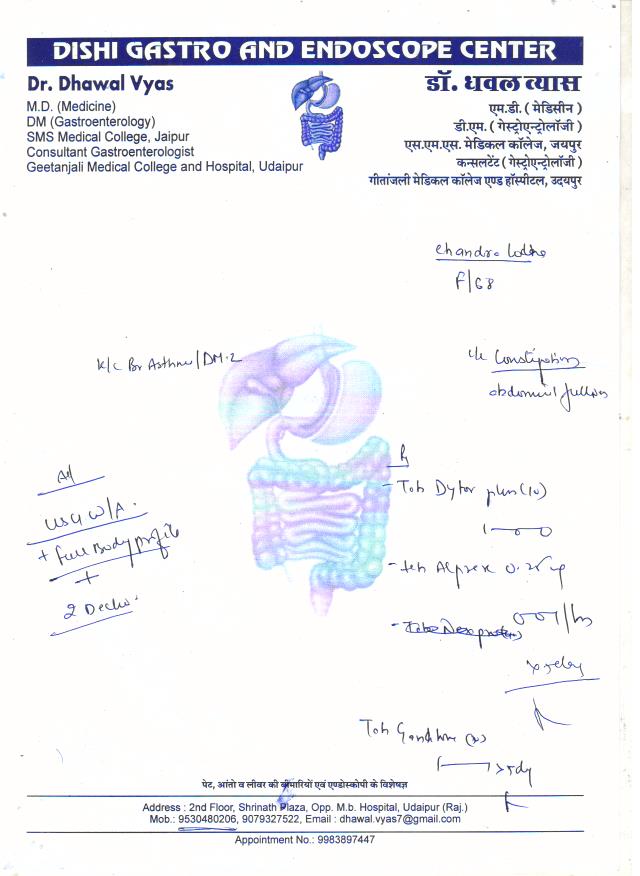 DISHI GASTRO AND ENDOSCOPE CENTER
Dr. Dhawal Vyas
M.D. (Medicine)
DM (Gastroenterology)
SMS Medical College, Jaipur
Consultant Gastroenterologist
Geetanjali Medical College and Hospital, Udaipur
डॉ. धवल व्यास
एम.डी. ( मेडिसीन )
डी.एम. ( गेस्ट्रोएन्ट्रोलॉजी )
एस.एम.एस. मेडिकल कॉलेज, जयपुर
कन्सलटेंट ( गेस्ट्रोएन्ट्रोलॉजी )
गीतांजली मेडिकल कॉलेज एण्ड हॉस्पीटल, उदयपुर
Chandra
F/68
K/C Br Asthma/DM-2
c/o Constipation
abdominal fullness
Adv
USG W/A.
+ Full Body profile
+
2 Decho
Rx
- Tab Dytor plus (10)
1-0-0
- tab Alprax 0.25 mg
001/hs
x 5 day
Tab
x 5 day
पेट, आंतो व लीवर की बीमारियों एवं एण्डोस्कोपी के विशेषज्ञ
Address : 2nd Floor, Shrinath Plaza, Opp. M.b. Hospital, Udaipur (Raj.)
Mob.: 9530480206, 9079327522, Email : dhawal.vyas7@gmail.com
Appointment No.: 9983897447